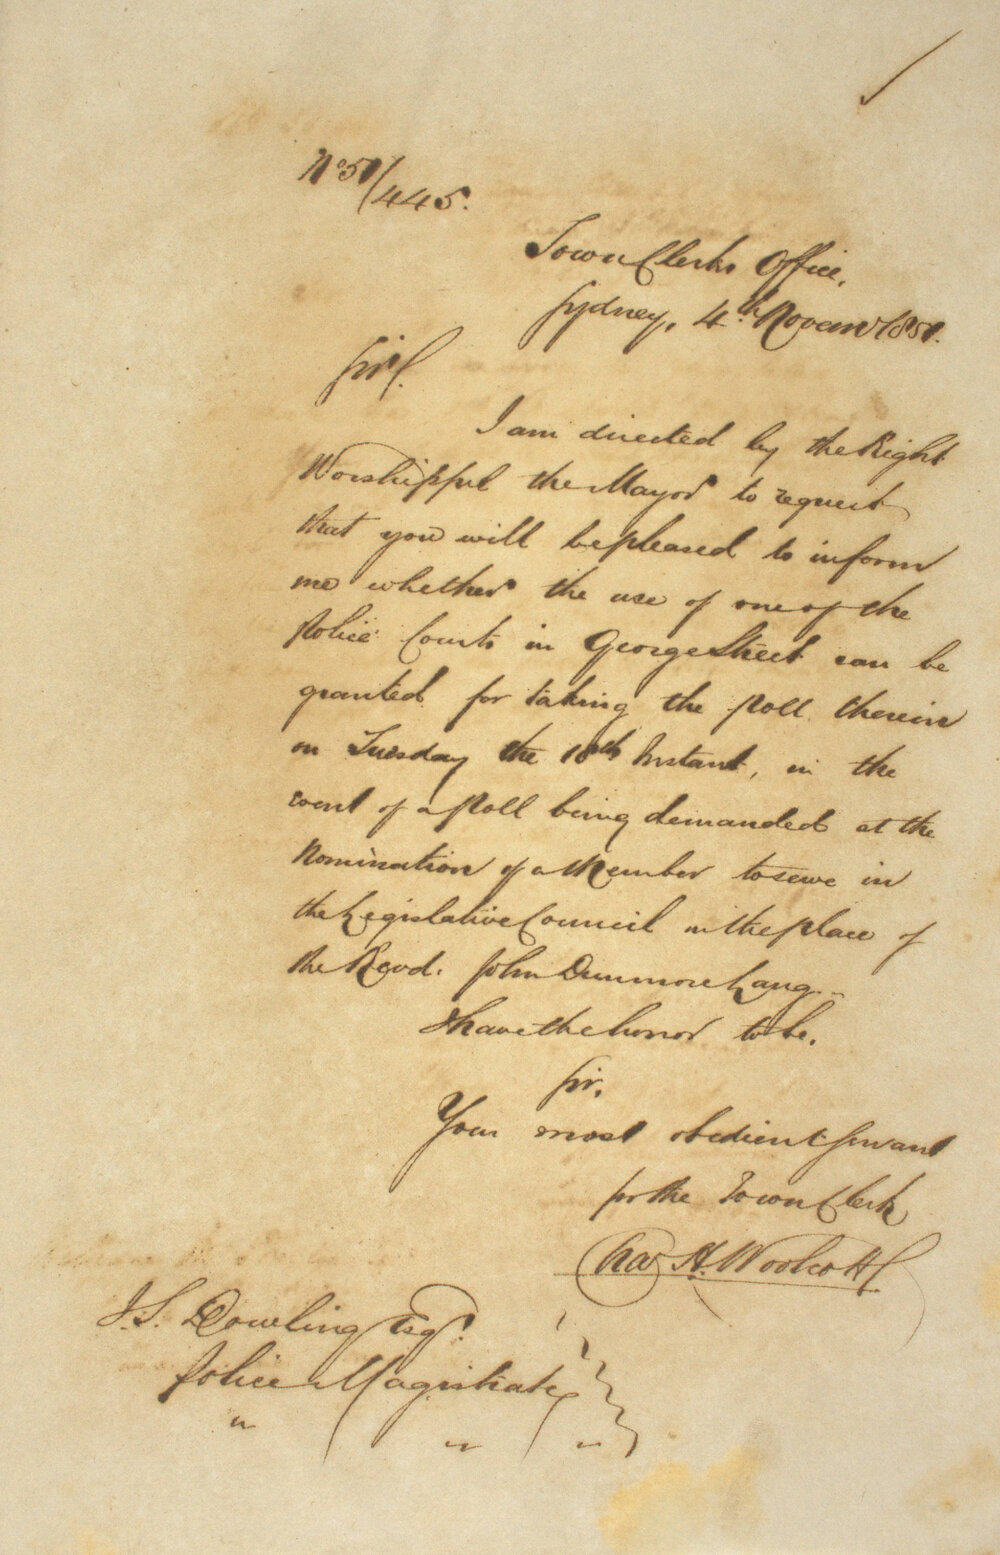 No 51/445.
Town Clerks Office,
Sydney, 4th Novemr 1851.
Sir,
I am directed by the Right
Worshipful the Mayor to request
that you will be pleased to inform
me whether the use of one of the
Police Courts in George Street can be
granted for taking the Poll therein
on Tuesday the 18th Instant, in the
event of a Poll being demanded at the
Nomination of a Member to serve in
the Legislative Council in the place of
the Revd. John Dunmore Lang.
I have the honor to be,
Sir,
Your most obedient Servant
for the Town Clerk
Chas H. Woolcott
J. S. Dowling Esqr.
Police Magistrate
" " "